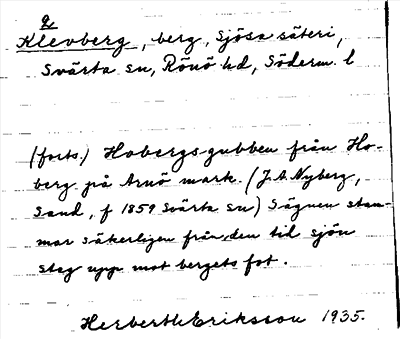 2
Klevberg, berg, Sjösa säteri,
Svärta sn, Rönö hd, Söderm. l
(forts.) Hobergsgubben från Ho-
berg på Arnö mark. (J.A. Nyberg,
Sand, f 1859 Svärta sn) Sägnen stam-
mar säkerligen från den tid sjön
steg upp mot bergets fot.
Herberth Eriksson 1935.